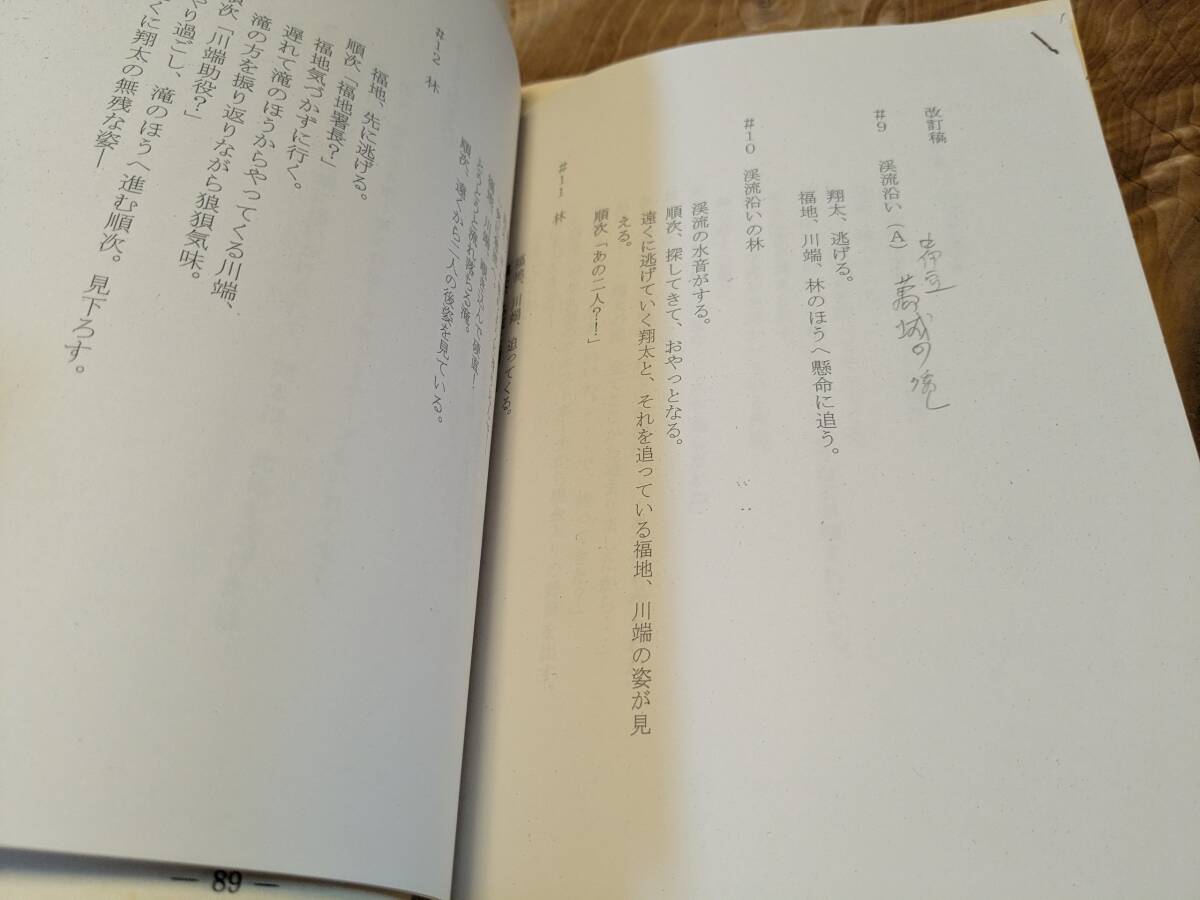 改訂稿
#9 渓流沿い(A)
翔太、逃げる。
福地、川端、林のほうへ懸命に追う。
#10 渓流沿いの林
渓流の水音がする。
順次、探してきて、おやっとなる。
遠くに逃げていく翔太と、それを追っている福地、川端の姿が見
える。
順次「あの二人?!」
#11 林
川端、追ってくる。
順次、遠くから二人の後姿を見ている。
#12 林
福地、先に逃げる。
順次「福地署長?」
福地気づかずに行く。
遅れて滝のほうからやってくる川端、
滝の方を振り返りながら狼狽気味。
順次「川端助役?」
やり過ごし、滝のほうへ進む順次。見下ろす。
くに翔太の無残な姿―
― 89 ―